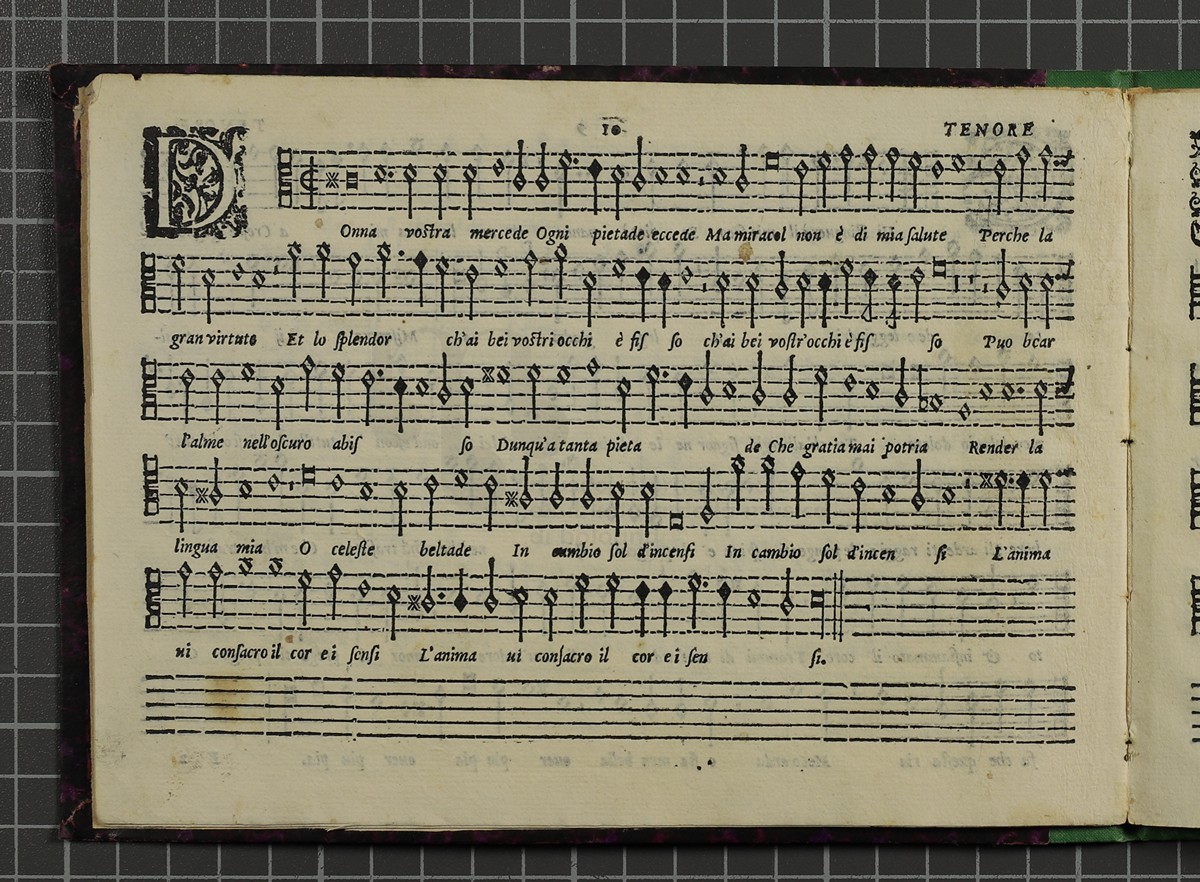 10
TENORE
DOnna vostra mercede Ogni pietade eccede Ma miracol non è di mia salute Perche la
gran virtute Et lo splendor ch'ai bei vostri occhi è fis so ch'ai bei vostr'occhi è fis so Puo bear
l'alme nell'oscuro abis so Dunqu'a tanta pieta de Che gratia mai potria Render la
lingua mia O celeste beltade In cambio sol d'incensi In cambio sol d'incen si L'anima
ui consacro il cor e i sensi L'anima ui consacro il cor e i sen si.